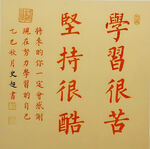 學習很苦
堅持很酷
將來的你一定會感謝
現在努力學習的自己
乙巳秋月史超書